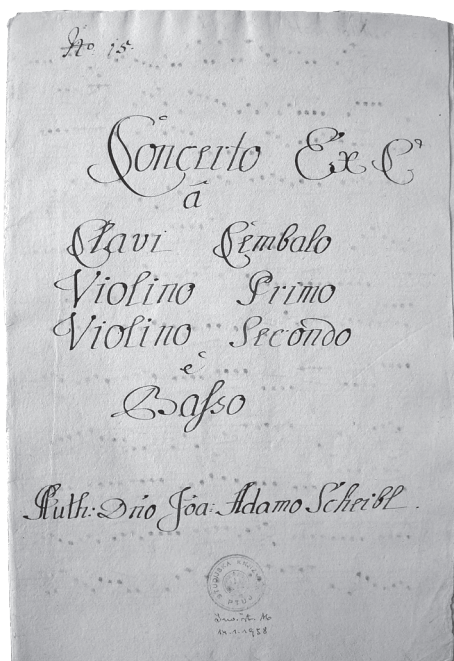 No 15.
Concerto Ex C
à
Clavi Cembalo
Violino Primo
Violino Secondo
è
Basso
Auth: Dńo Joa: Adamo Scheibl.
PTUJ
14.1.1958